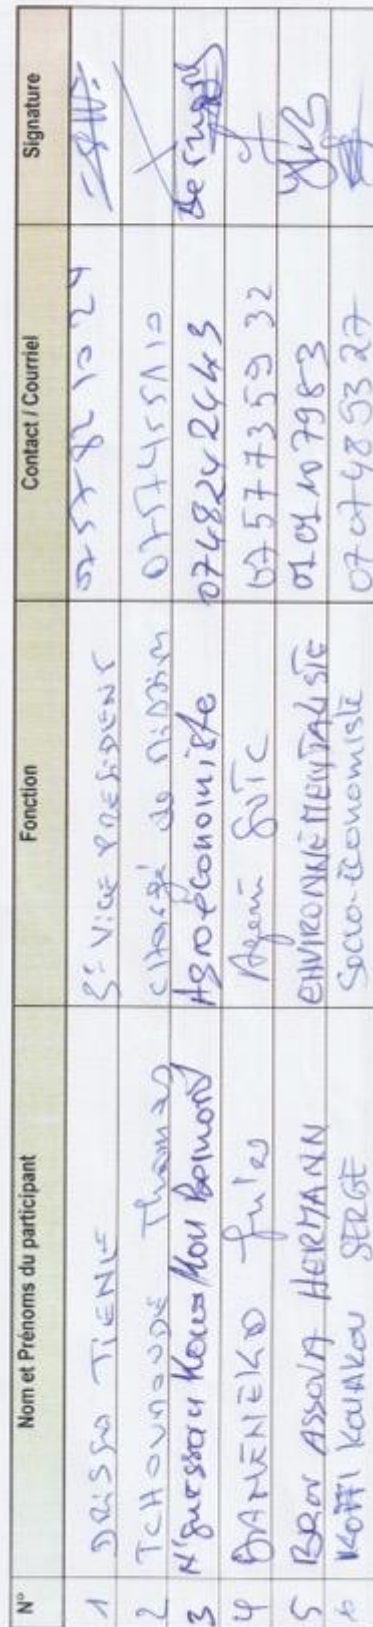 N° Nom et Prénoms du participant Fonction Contact / Courriel Signature
1 DRISSA TIENE 5e VICE PRESIDENT 0757821024
2 Thomas chargé de mission 0757455110
3 N'guessan Kouakou Bernard Agroéconomiste 0748242443
4 Jules Agent 0757735932
5 BROU ASSOUA HERMANN ENVIRONNEMENTALISTE 0101107983
6 KOFFI KOUAKOU SERGE Socio-économiste 0707489327